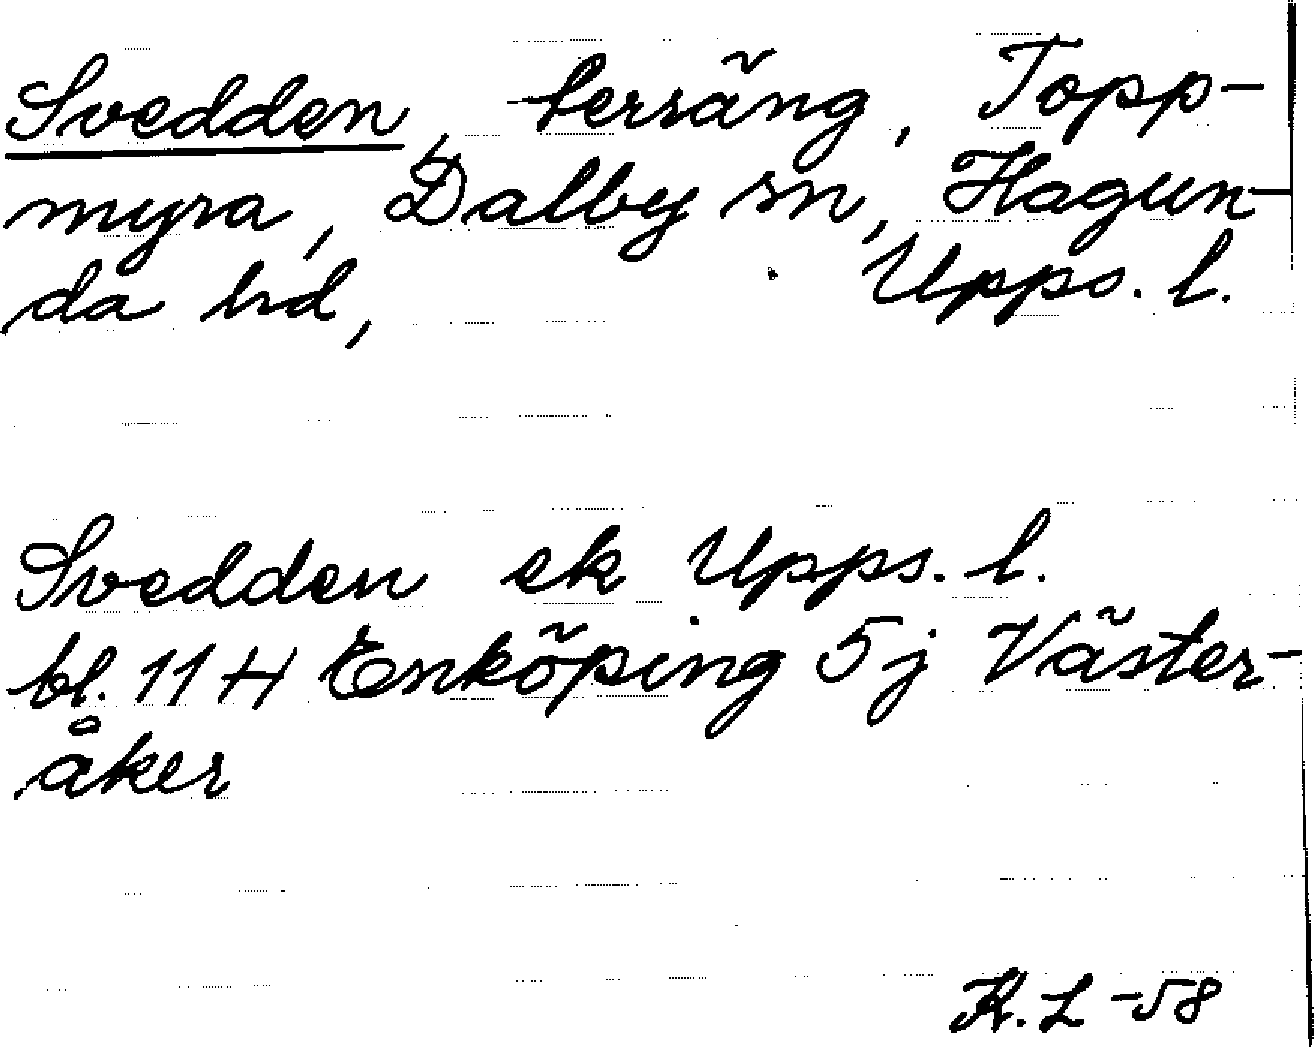 Svedden, bersäng, Topp-
myra, Dalby sn, Hagun-
da hd, Upps. l.
Svedden ek Upps. l.
bl. 11 H Enköping 5j Väster-
åker
K. L -58